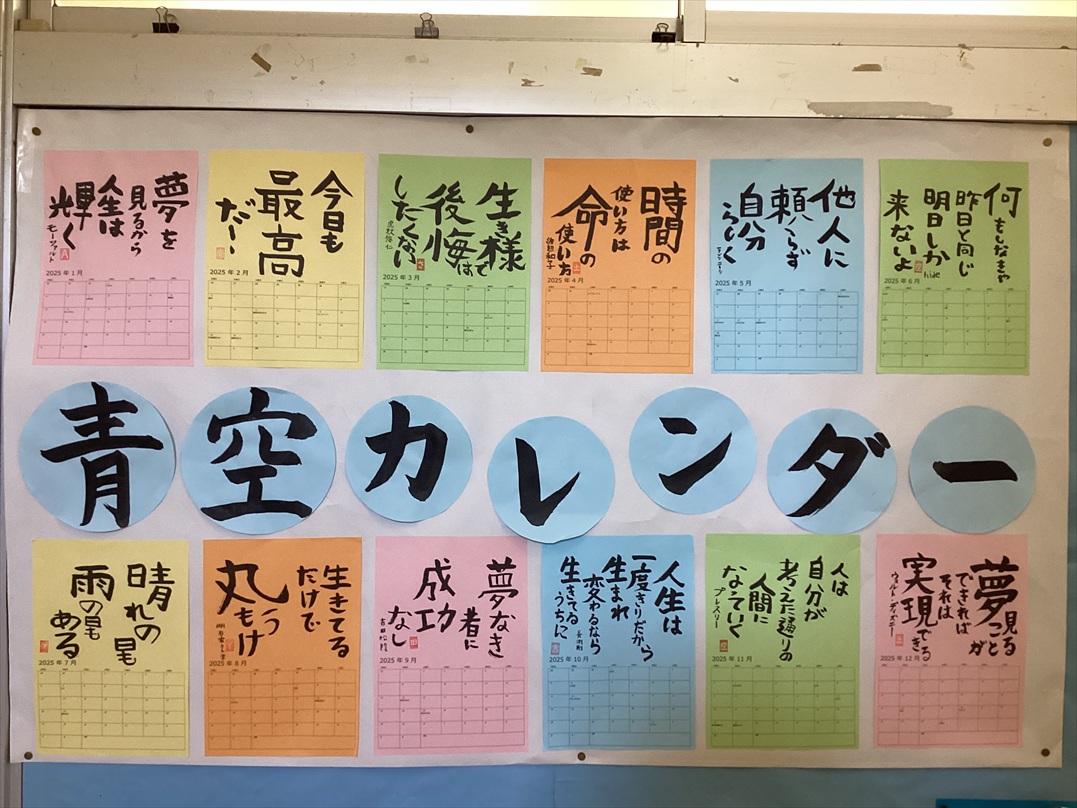 夢を
見るから
人生は
輝く
モーツァルト
2025年1月
今日も
最高
だー!
2025年2月
生き様で
後悔は
したくない
2025年3月
時間の
使い方は
命の
使い方
渡辺和子
2025年4月
他人に
頼らず
自分
らしく
2025年5月
何もしなきゃ
昨日と同じ
明日しか
来ないよ
hide
2025年6月
青空カレンダー
晴れの日も
雨の日も
ある
2025年7月
生きてる
だけで
丸
もうけ
明石家さんま
2025年8月
夢なき
者に
成功
なし
吉田松陰
2025年9月
人生は
一度きりだから
生まれ
変わるなら
生きてる
うちに
長渕剛
2025年10月
人は
自分が
考えた通りの
人間に
なっていく
プレスリー
2025年11月
夢見ることが
できれば
それは
実現できる
ウォルト・ディズニー
2025年12月